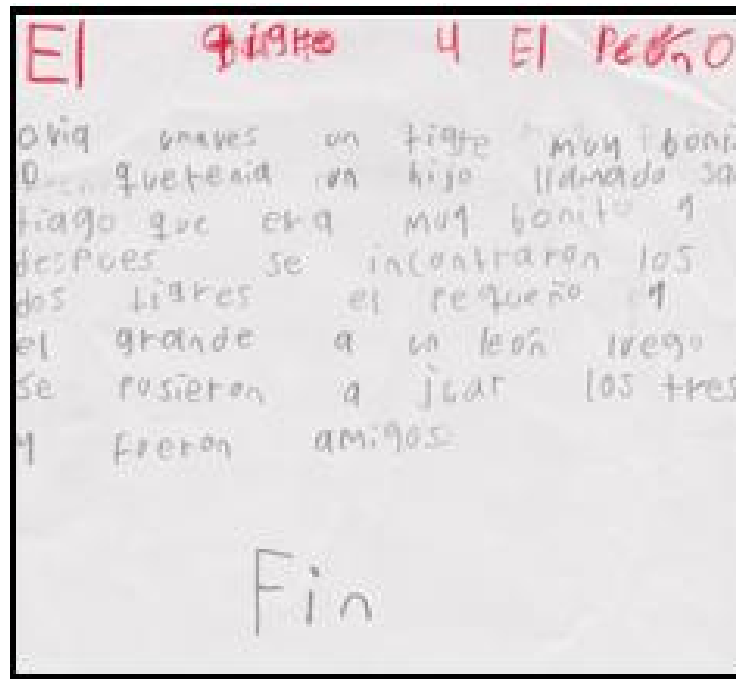 El tigre y El
avia unaves un tigre muy bonit
o quetenia un hijo llamado san
tiago que era muy bonito y
despues se incontraron los
dos tigres el pequeño y
el grande a un león luego
se pusieron a juar los tres
y fueron amigos
Fin